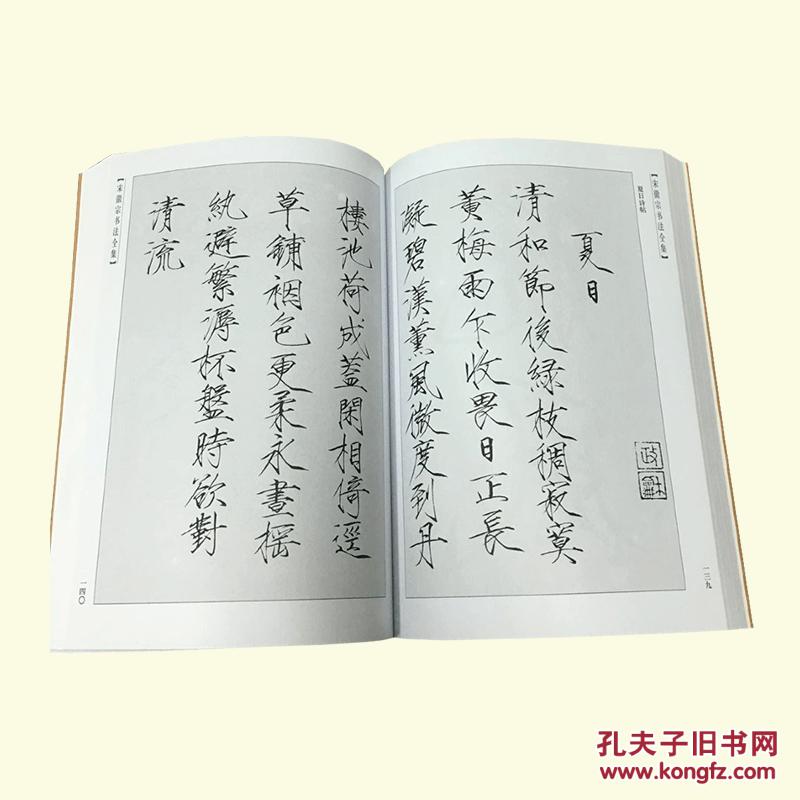 【宋徽宗书法全集】
夏日诗帖
夏日
清和節後綠枝稠寂寞
黃梅雨乍收畏日正長
凝碧漢薰風微度到丹
政
和
一三九
樓池荷成蓋閑相倚逕
草鋪裀色更柔永晝搖
紈避繁溽杯盤時欲對
清流
【宋徽宗书法全集】
一四〇
孔夫子旧书网
www.kongfz.com